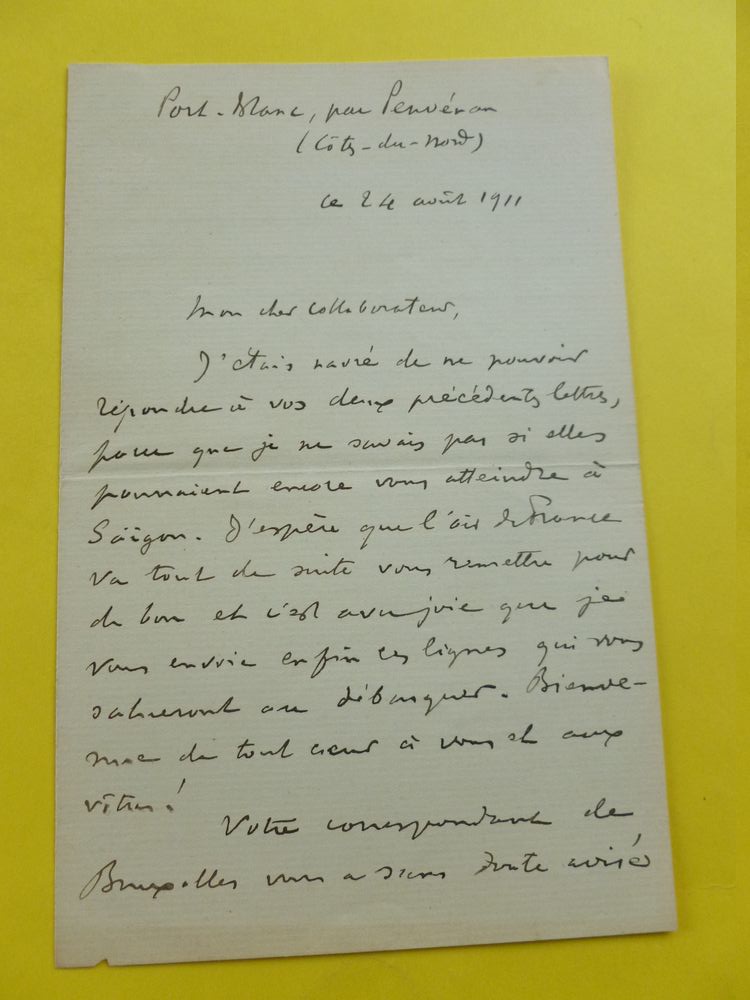 Port-Blanc, par Penvénan
(Côtes-du-Nord)
le 24 août 1911
Mon cher collaborateur,
J'étais navré de ne pouvoir
répondre à vos deux précédentes lettres,
parce que je ne savais pas si elles
pourraient encore vous atteindre à
Saïgon. J'espère que l'air de France
va tout de suite vous remettre pour
de bon et c'est avec joie que je
vous envoie enfin ces lignes qui vous
salueront au débarquer. Bienve-
nue de tout cœur à vous et aux
vôtres !
Votre correspondant de
Bruxelles vous a sans doute avisé